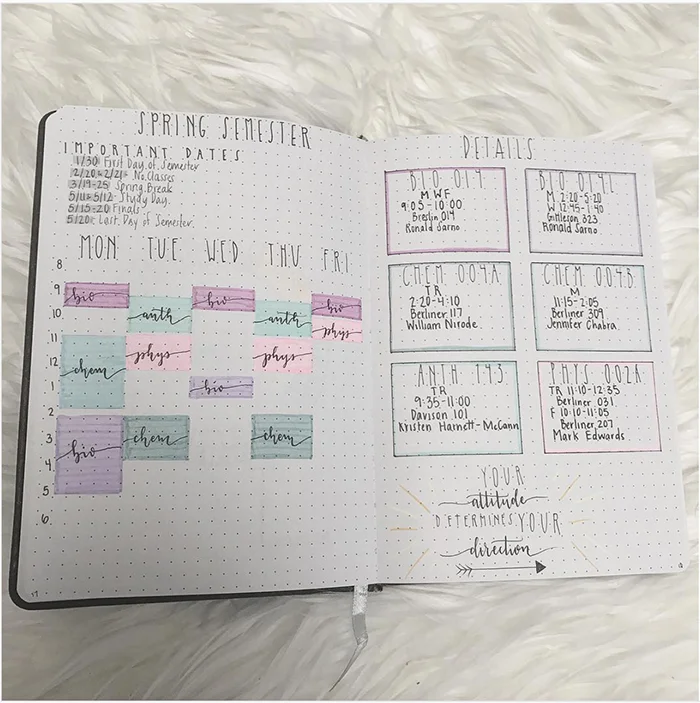 SPRING SEMESTER
IMPORTANT DATES
1/30 First Day of Semester
2/20-2/21 No Classes
3/19-25 Spring Break
5/11-5/12 Study Day
5/15-20 Finals
5/20: Last Day of Semester
MON TUE WED THU FRI
8
9
bio bio bio
10
anth anth phys
11
phys phys
12
chem
1
bio
2
3
chem chem
4
bio
5
6
DETAILS
BIO 014
M WF
9:05-10:00
Breslin 014
Ronald Sarno
BIO 014L
M 2:20-5:20
W 12:45-1:40
Gittleson 323
Ronald Sarno
CHEM 004A
TR
2:20-4:10
Berliner 117
William Nirode
CHEM 004B
M
11:15-2:05
Berliner 309
Jennifer Chabra
ANTH 193
TR
9:35-11:00
Davison 101
Kristen Harnett-McCann
PHYS 002A
TR 11:10-12:35
Berliner 031
F 10:10-11:05
Berliner 207
Mark Edwards
YOUR
attitude
DETERMINES YOUR
direction